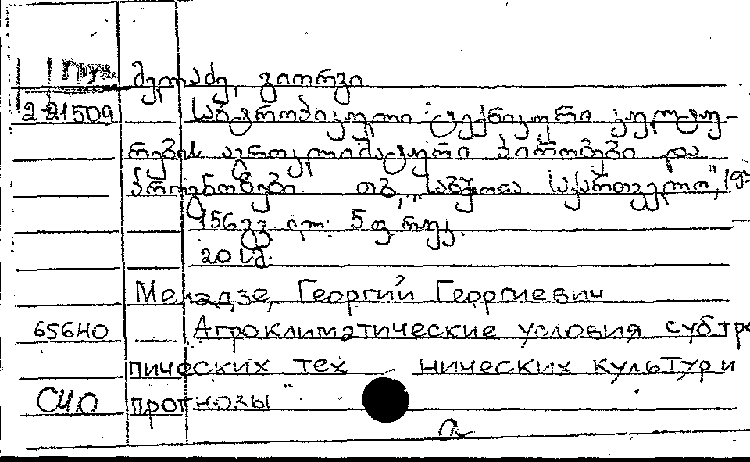 Груз. მელაძე, გიორგი
2-21509 სუბტროპიკული ტექნიკური კულტუ-
რების აგროკლიმატური პირობები და
პროგნოზები. თბ, „საბჭოთა საქართველო", 19
156 გვ. ილ. 5 ფ. რუკ.
20 სმ.
Меладзе, Георгий Георгиевич
65640 Агроклиматические условия субтро
пических тех нических культур и
СИО прогнозы"